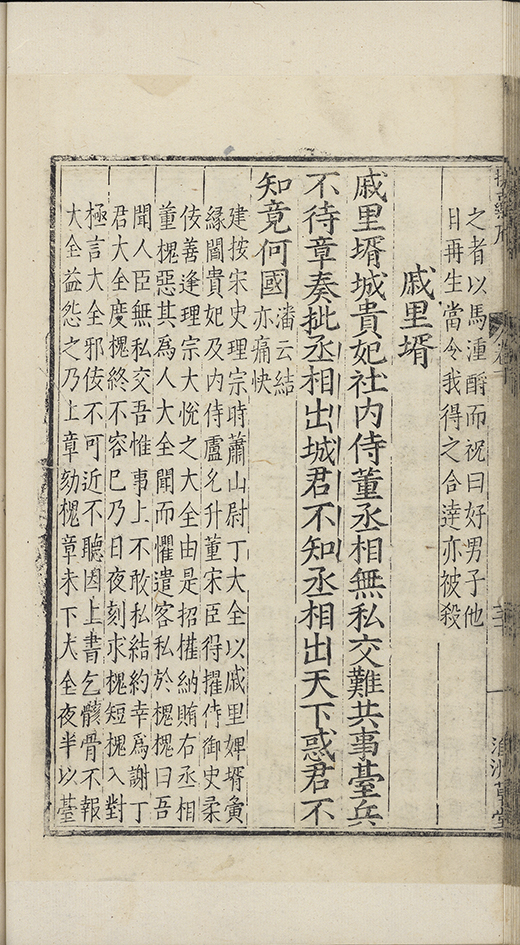 之者以馬湩酹而祝曰好男子他
日再生當令我得之合達亦被殺
戚里壻
戚里壻城貴妃社内侍董丞相無私交難共事臺兵
不待章奏批丞相出城君不知丞相出天下惑君不
知竟何國
潘云結
亦痛快
建按宋史理宗時蕭山尉丁大全以戚里婢壻夤
緣閻貴妃及内侍盧允升董宋臣得擢侍御史柔
佞善逢理宗大悅之大全由是招權納賄右丞相
董槐惡其爲人大全聞而懼遣客私於槐槐曰吾
聞人臣無私交吾惟事上不敢私結約幸爲謝丁
君大全度槐終不容已乃日夜刻求槐短槐入對
極言大全邪佞不可近不聽因上書乞骸骨不報
大全益怨之乃上章劾槐章未下大全夜半以臺